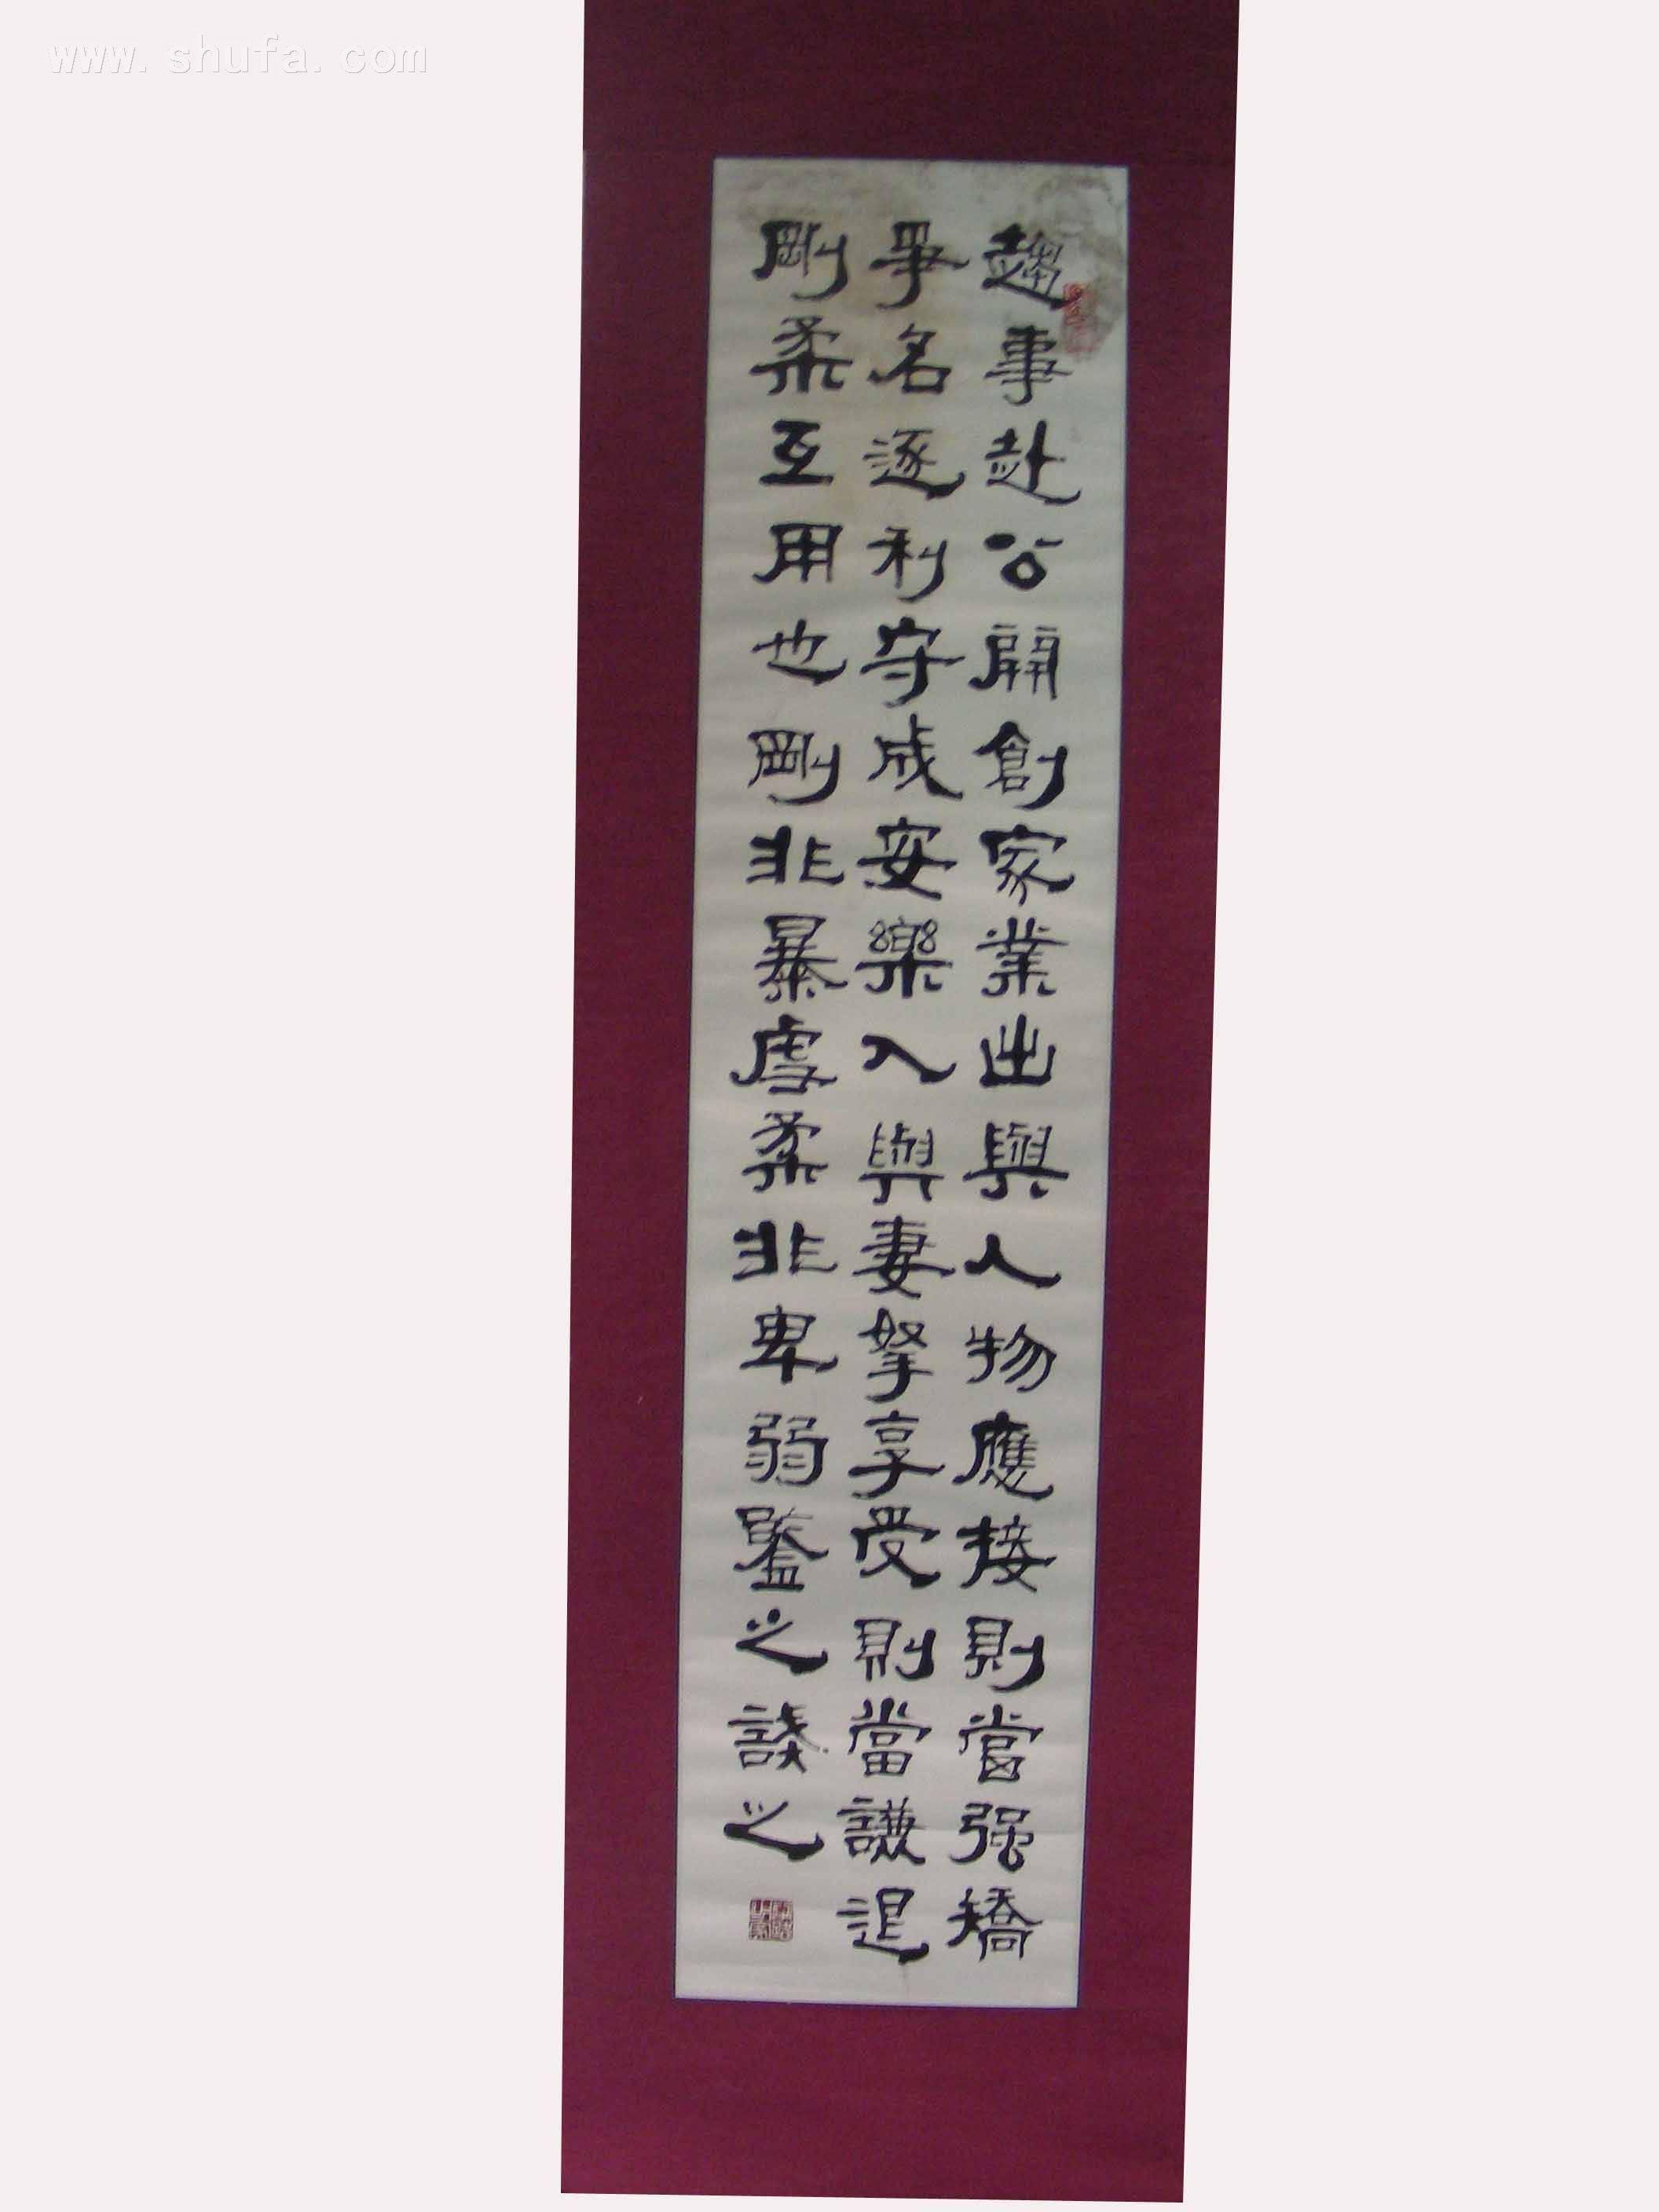 www.shufa.com
趨事赴公開創家業出與人物應接則當强矯
爭名逐利守成安樂入與妻孥享受則當謙退
剛柔互用也剛非暴虐柔非卑弱鑒之誡之